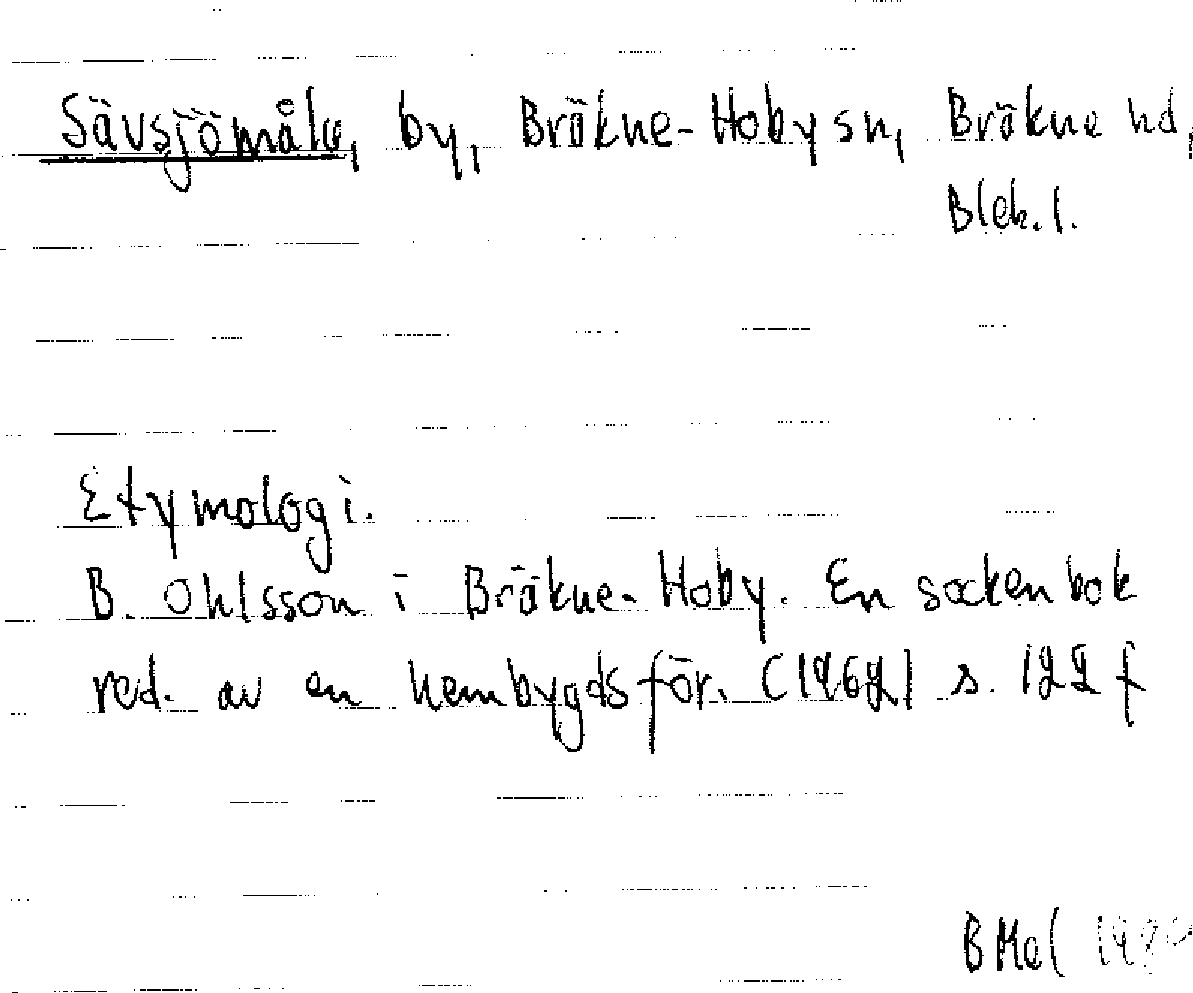 Sävsjömåla, by, Bräkne-Hoby sn, Bräkne hd,
Blek. l.
Etymologi.
B. Ohlsson i Bräkne-Hoby. En sockenbok
red. av en hembygdsför. (1962) s. 122 f
BMel